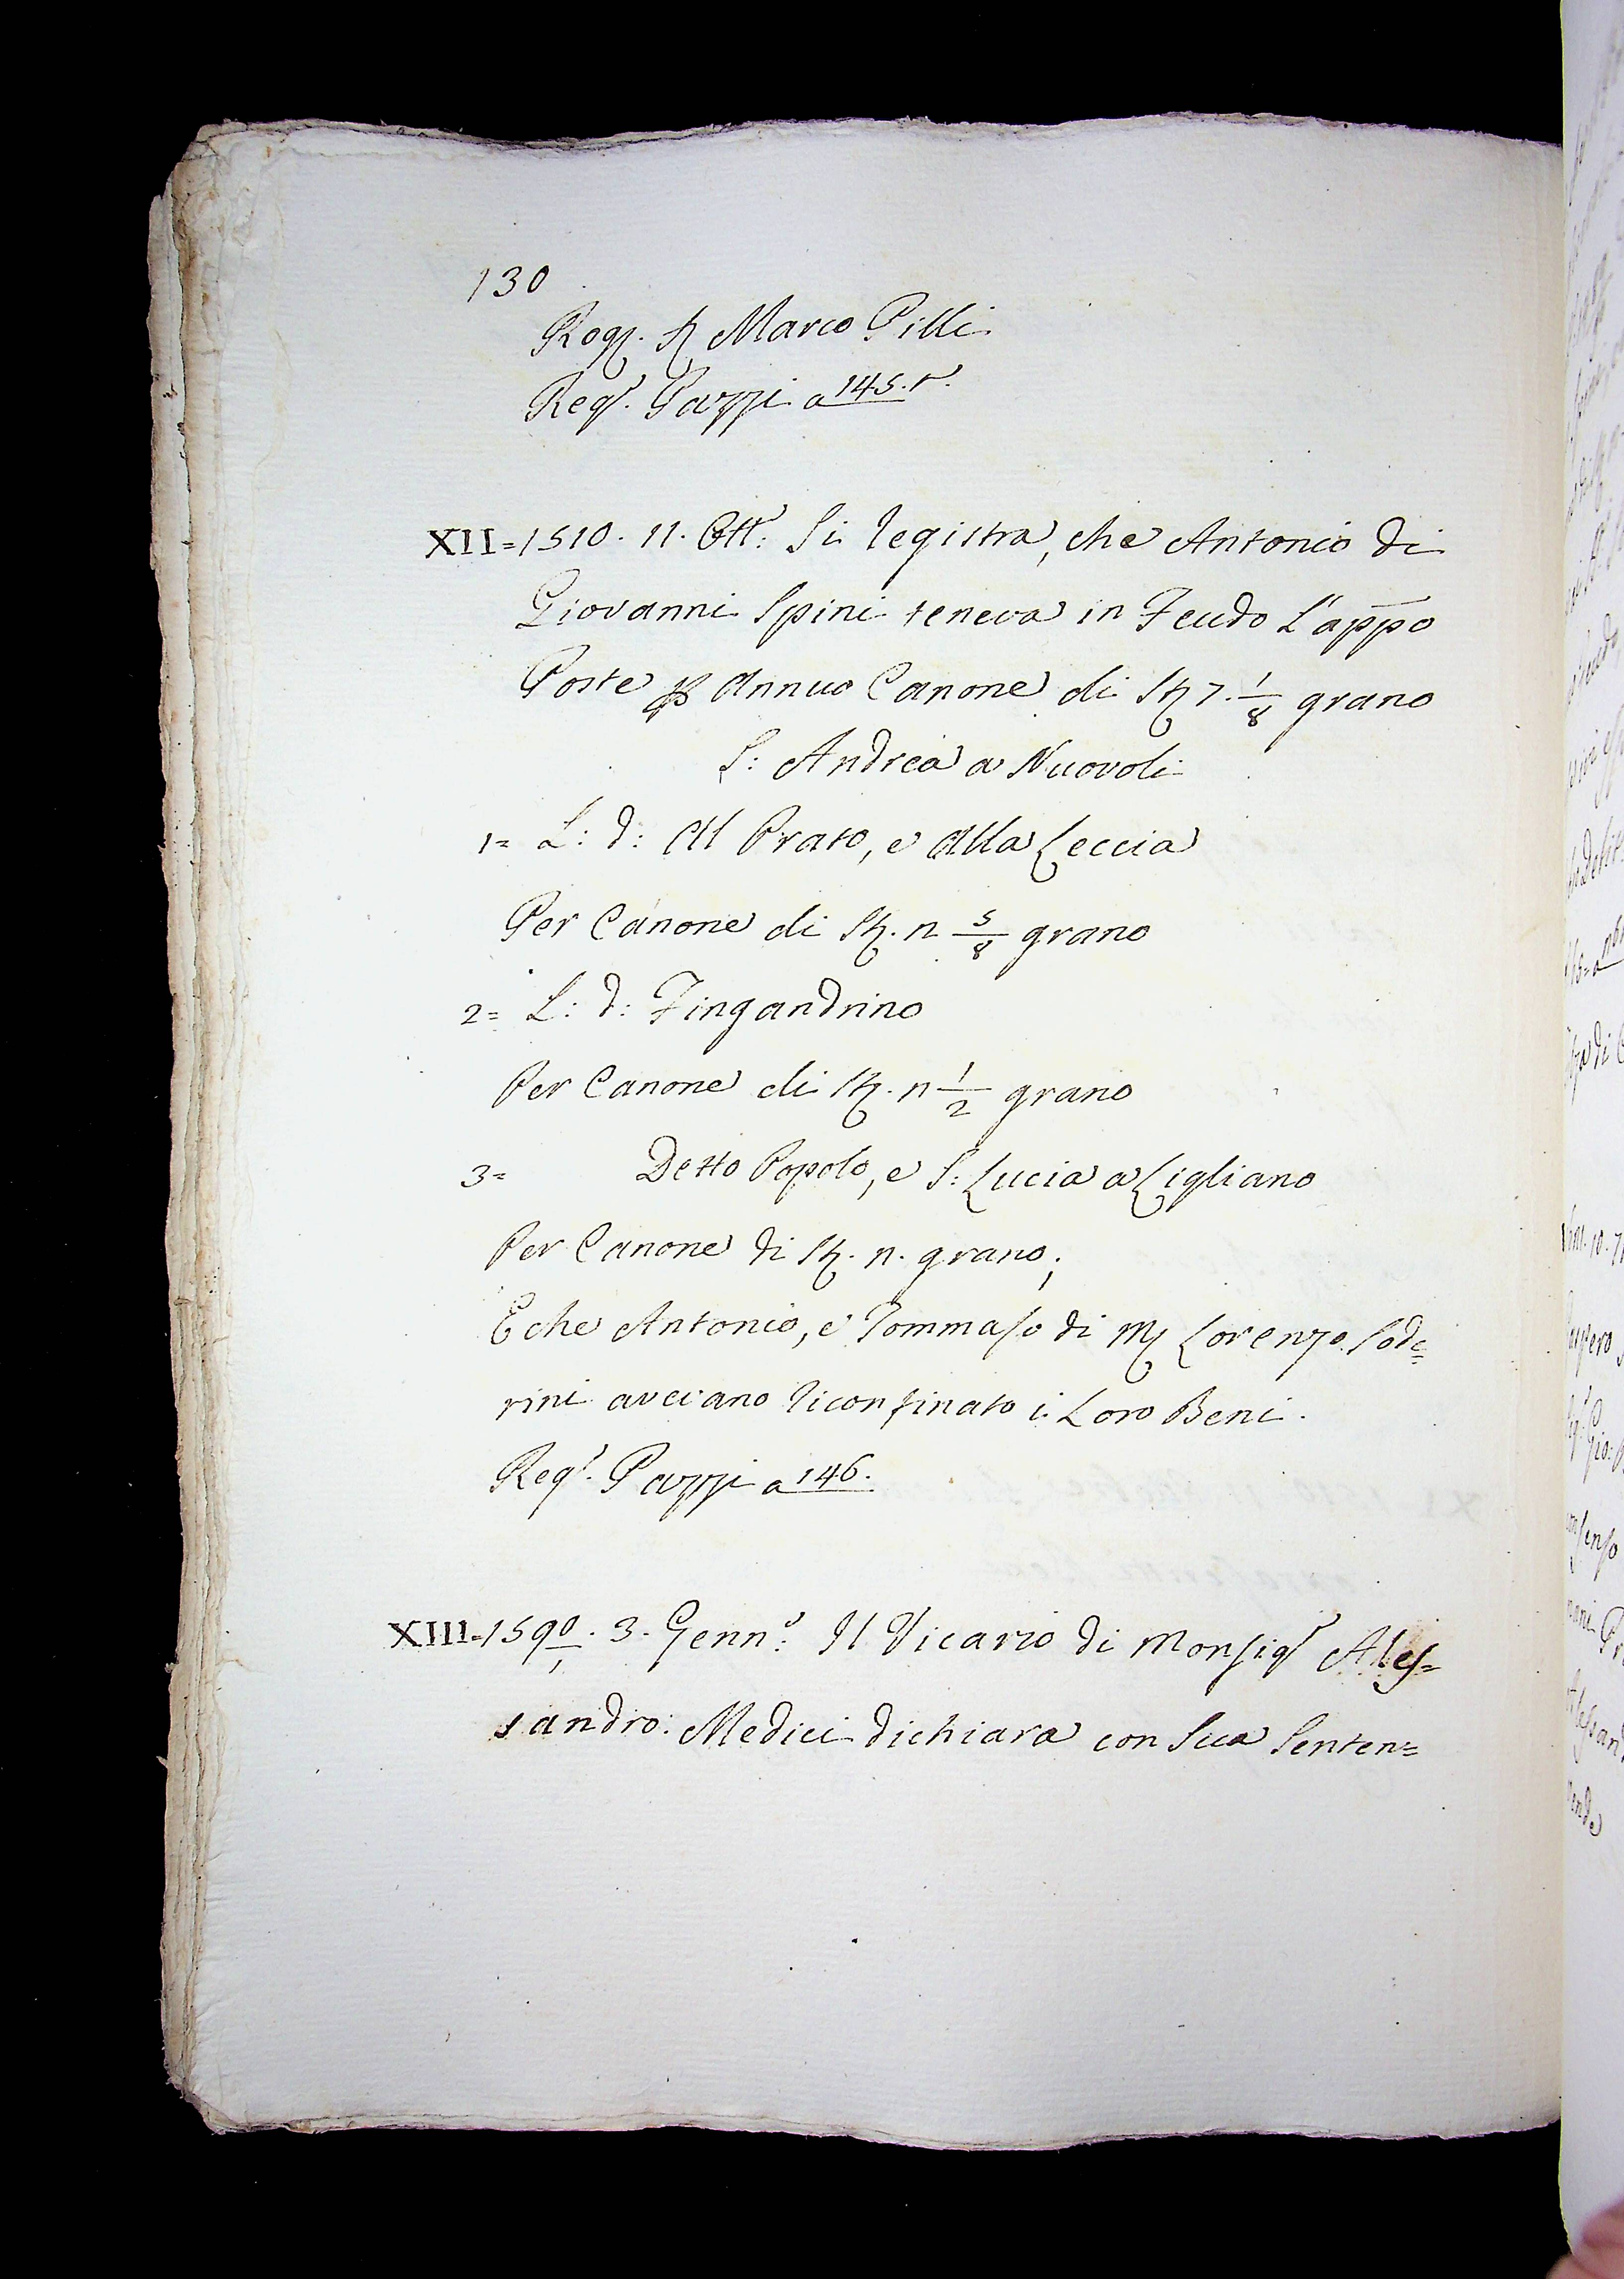 130
Rog. S. Marco Pilli
Regº. Pazzi a 145. t.
XII=1510. 11. Ott: Si registra, che Antonio di
Giovanni Spini teneva in Feudo L'appo
Poste p annuo Canone di St 7. 1/8 grano
S: Andrea a Nuovoli
1= L: d: Al Prato, e alla Leccia
Per Canone di St. n 5/8 grano
2= L: d: Fingandrino
Per Canone di St. n 1/2 grano
3= Detto Popolo, e S: Lucia a Cigliano
Per Canone di St. n. grano;
E che Antonio, e Tommaso di M Lorenzo Sode=
rini aveano riconfinato i Loro Beni.
Regº. Pazzi a 146.
XIII=1590/1. 3. Gennº: Il Vicario di Monsigr Ales=
sandro: Medici dichiara con Sua Senten=